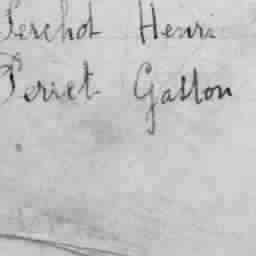 Perchot Henri
Periet Gaston